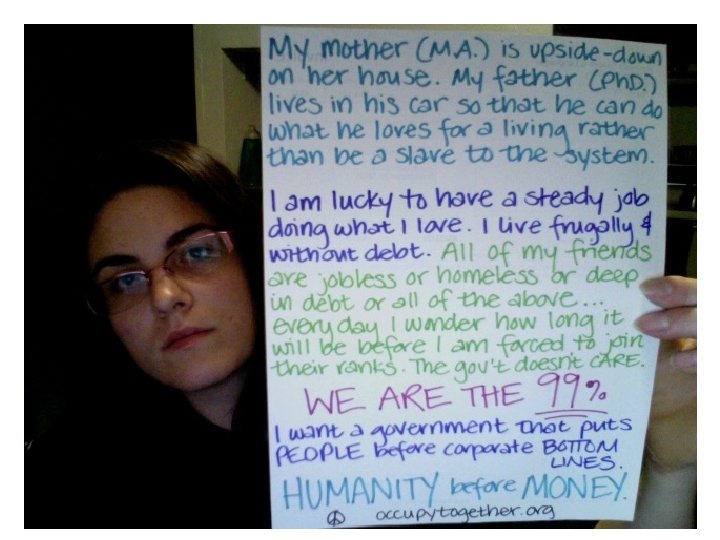 My mother (M.A.) is upside-down
on her house. My father (PhD.)
lives in his car so that he can do
what he loves for a living rather
than be a slave to the system.
I am lucky to have a steady job
doing what I love. I live frugally &
without debt. All of my friends
are jobless or homeless or deep
in debt or all of the above...
everyday I wonder how long it
will be before I am forced to join
their ranks. The gov't doesn't CARE.
WE ARE THE 99%
I want a government that puts
PEOPLE before corporate BOTTOM
LINES.
HUMANITY before MONEY.
occupytogether.org